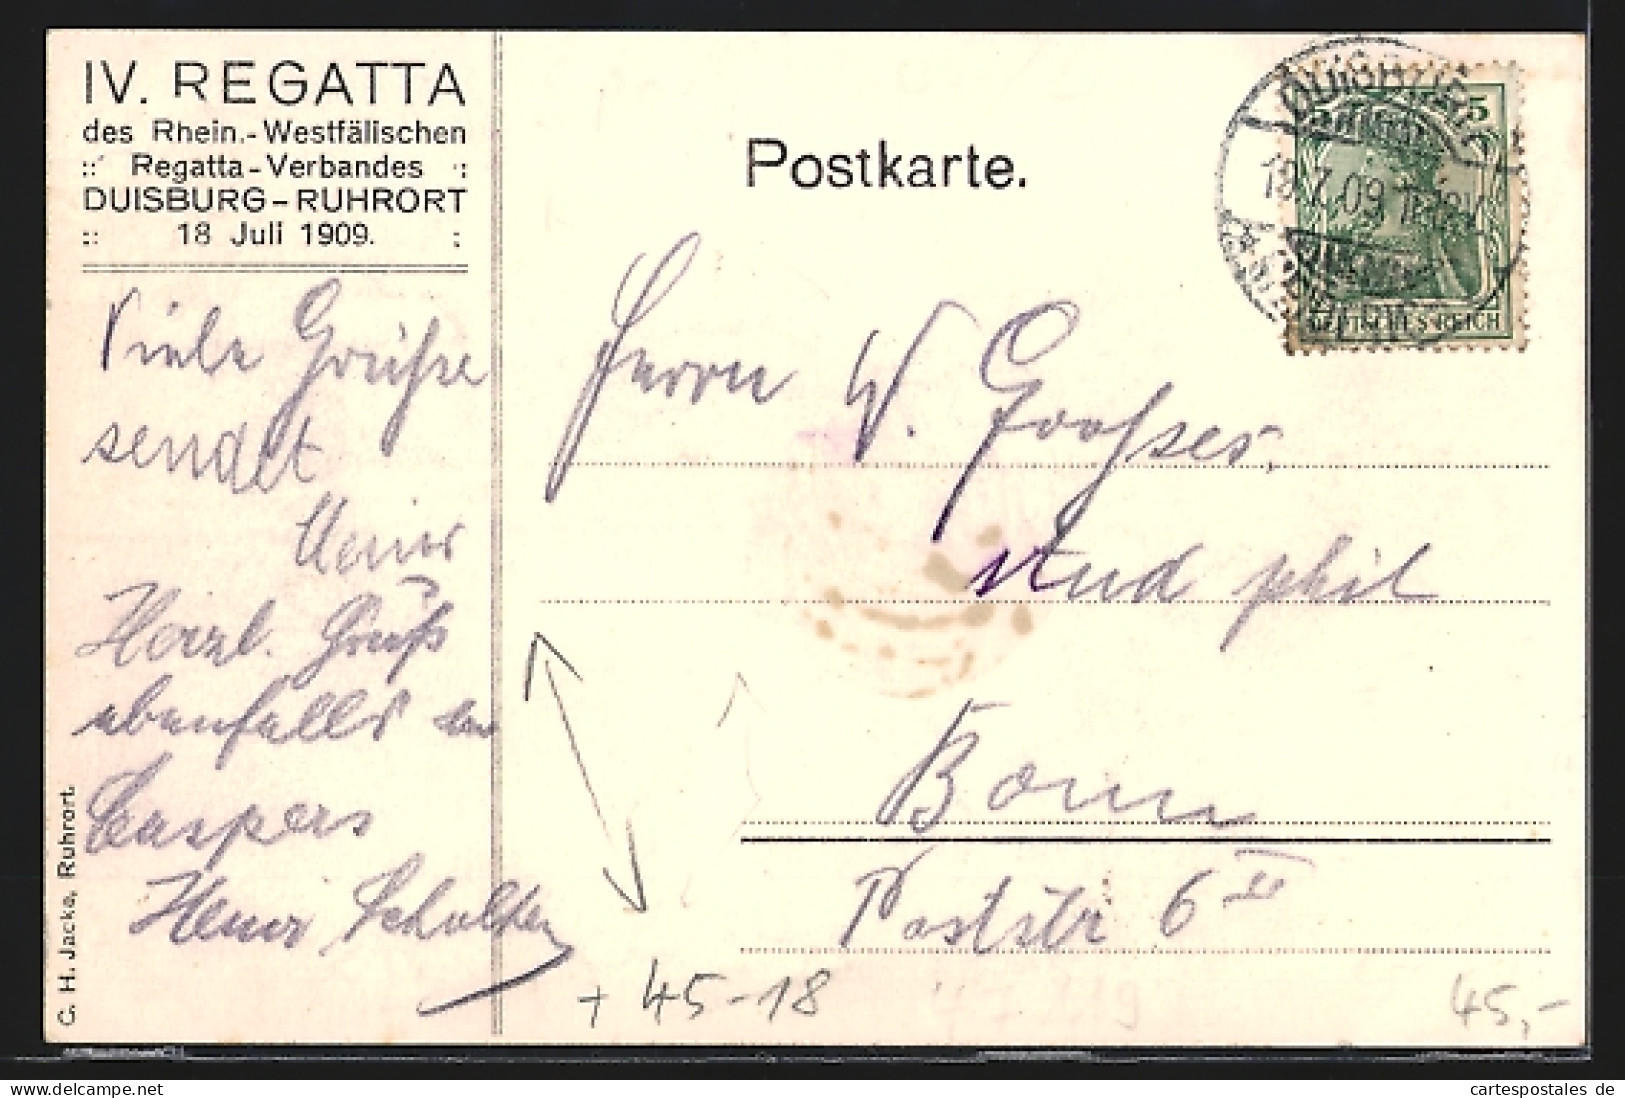 IV. REGATTA
des Rhein.-Westfälischen
:: Regatta-Verbandes ::
DUISBURG-RUHRORT
:: 18 Juli 1909. :
Viele Grüße
sendet
Heinr
Herzl. Gruß
ebenfalls
Caspers
Henri Schulten
G. H. Jacke, Ruhrort.
Postkarte.
DUISBURG
18.7.09
5
DEUTSCHES REICH
Herrn W.
stud phil
Bonn
Poststr 6 II
+ 45-18
45,-
cartespostales.de